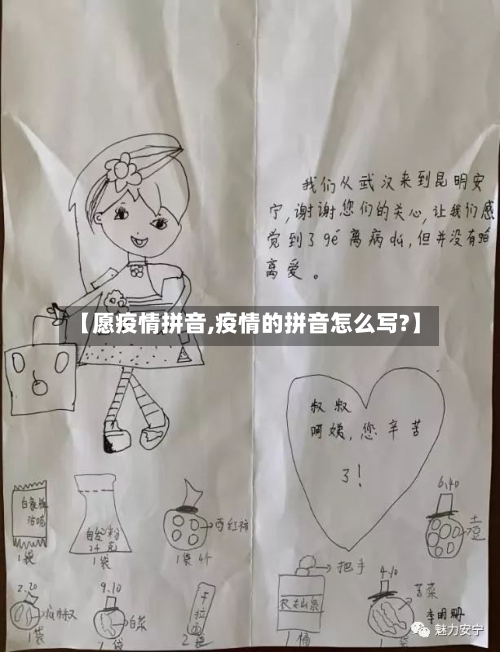 我们从武汉来到昆明安
宁,谢谢您们的关心,让我们感
觉到了gé离病dú,但并没有
离爱。
【愿疫情拼音,疫情的拼音怎么写?】
叔叔
阿姨,您辛苦
了!
1袋
1袋
西红柿
1袋 4个
6.40
土豆
2.20
1袋
9.10
白菜
2袋
把手
1桶
4.10
苦菜
魅力安宁